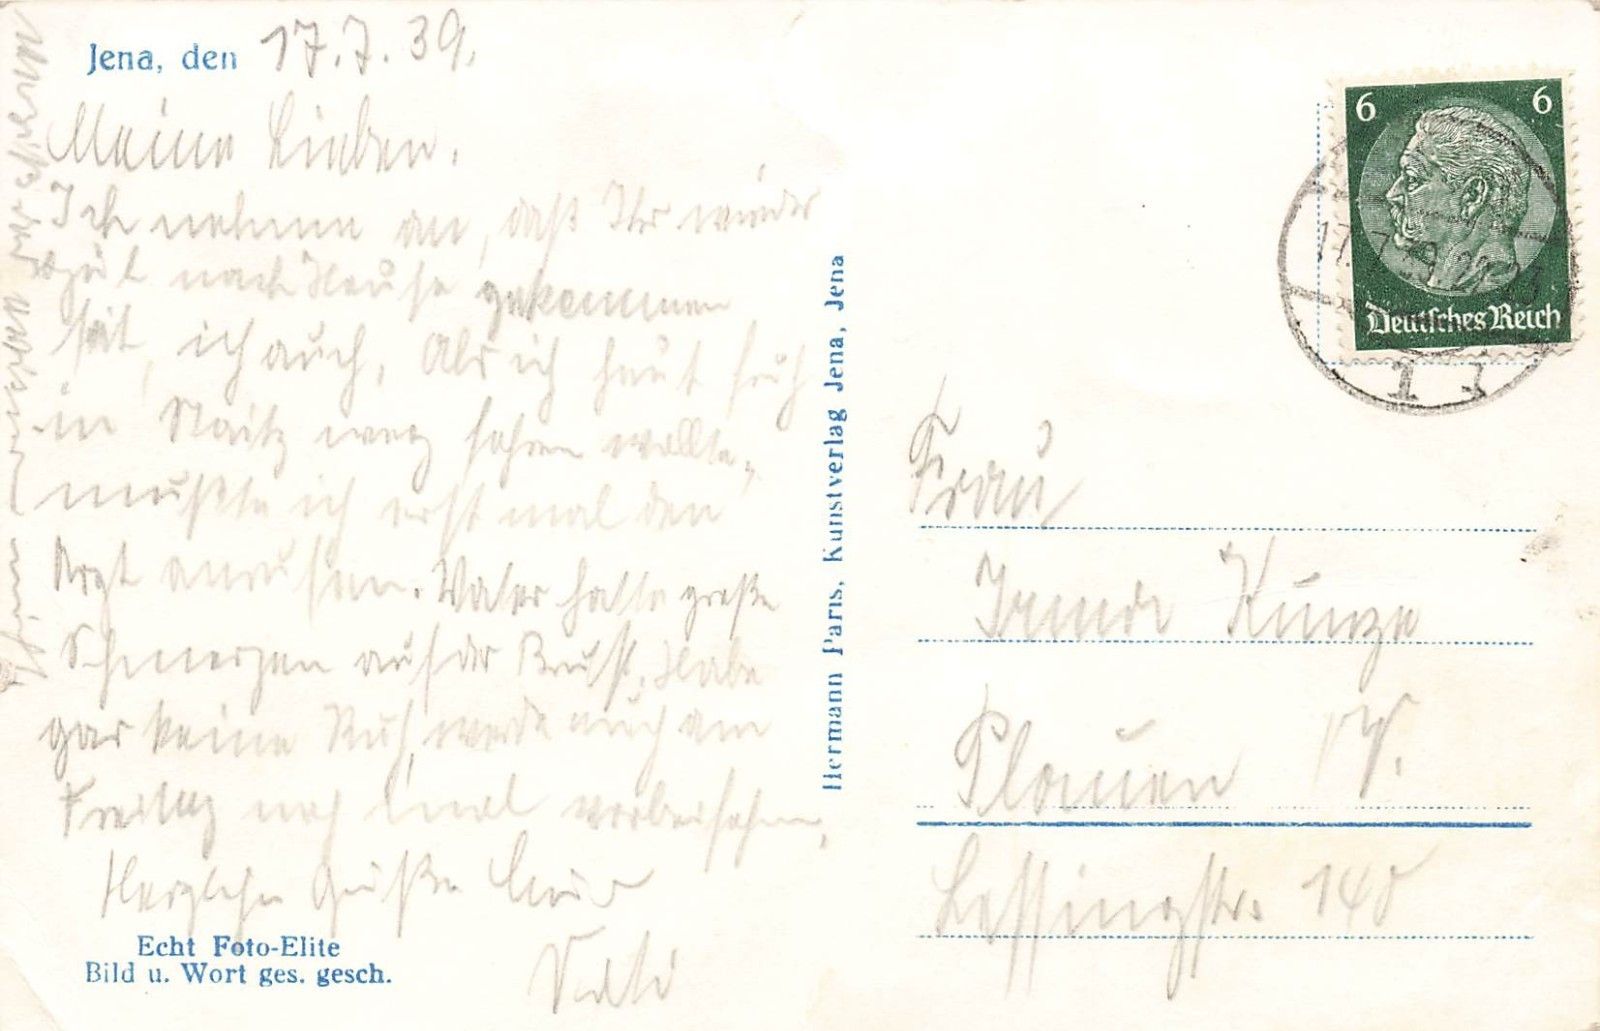 Jena, den 17.7.39.
Meine Lieben.
Ich nehme an, daß Ihr wieder
nach Hause gekommen
seit, ich auch. Als ich heut früh
in weg fahren wollte,
mußte ich erst mal den
Arzt anrufen. Vater hatte große
Schmerzen auf der Brust. Habe
gar keine Ruh, werde auch am
Freitag noch mal vorbeifahren,
Herzliche Grüße
Echt Foto-Elite
Bild u. Wort ges. gesch.
Hermann Paris, Kunstverlag Jena, Jena
6 6
Deutsches Reich
17.7.39
Frau
Kunze
Plauen i/V.
Lessingstr. 140